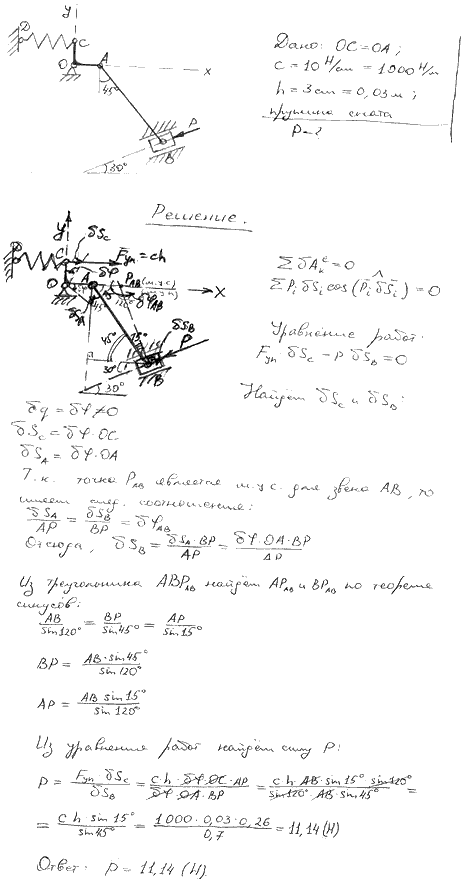 y
D
C
O
A
x
45°
P
B
30°
Дано: OC = OA;
c = 10 Н/см = 1000 Н/м
h = 3 см = 0,03 м;
пружина сжата
P - ?
Решение.
y
δSc
D
C
Fуп = ch
δφ
O
A
x
δSA
PAB (м.ц.с)
δφAB
45°
15°
δSB
P
30°
B
30°
ΣδAₖᵉ = 0
ΣPᵢ δSᵢ cos(Pᵢ^δSᵢ) = 0
Уравнение работ:
Fуп · δSc - P δSB = 0
Найдем δSc и δSB:
δq = δφ ≠ 0
δSc = δφ · OC
δSA = δφ · OA
Т.к. точка PAB является м.ц.с. для звена AB, то
имеет след. соотношение:
δSA/AP = δSB/BP = δφAB
Отсюда, δSB = δSA · BP/AP = δφ · OA · BP/AP
Из треугольника ABPAB найдем APAB и BPAB по теореме
синусов:
AB/sin120° = BP/sin45° = AP/sin15°
BP = AB · sin45°/sin120°
AP = AB sin15°/sin120°
Из уравнения работ найдем силу P:
P = Fуп · δSc/δSB = c h · δφ · OC · AP/δφ · OA · BP = c h · AB · sin15° · sin120°/sin120° · AB · sin45° =
= c h sin15°/sin45° = 1000 · 0,03 · 0,26/0,7 = 11,14 (Н)
Ответ: P = 11,14 (Н)